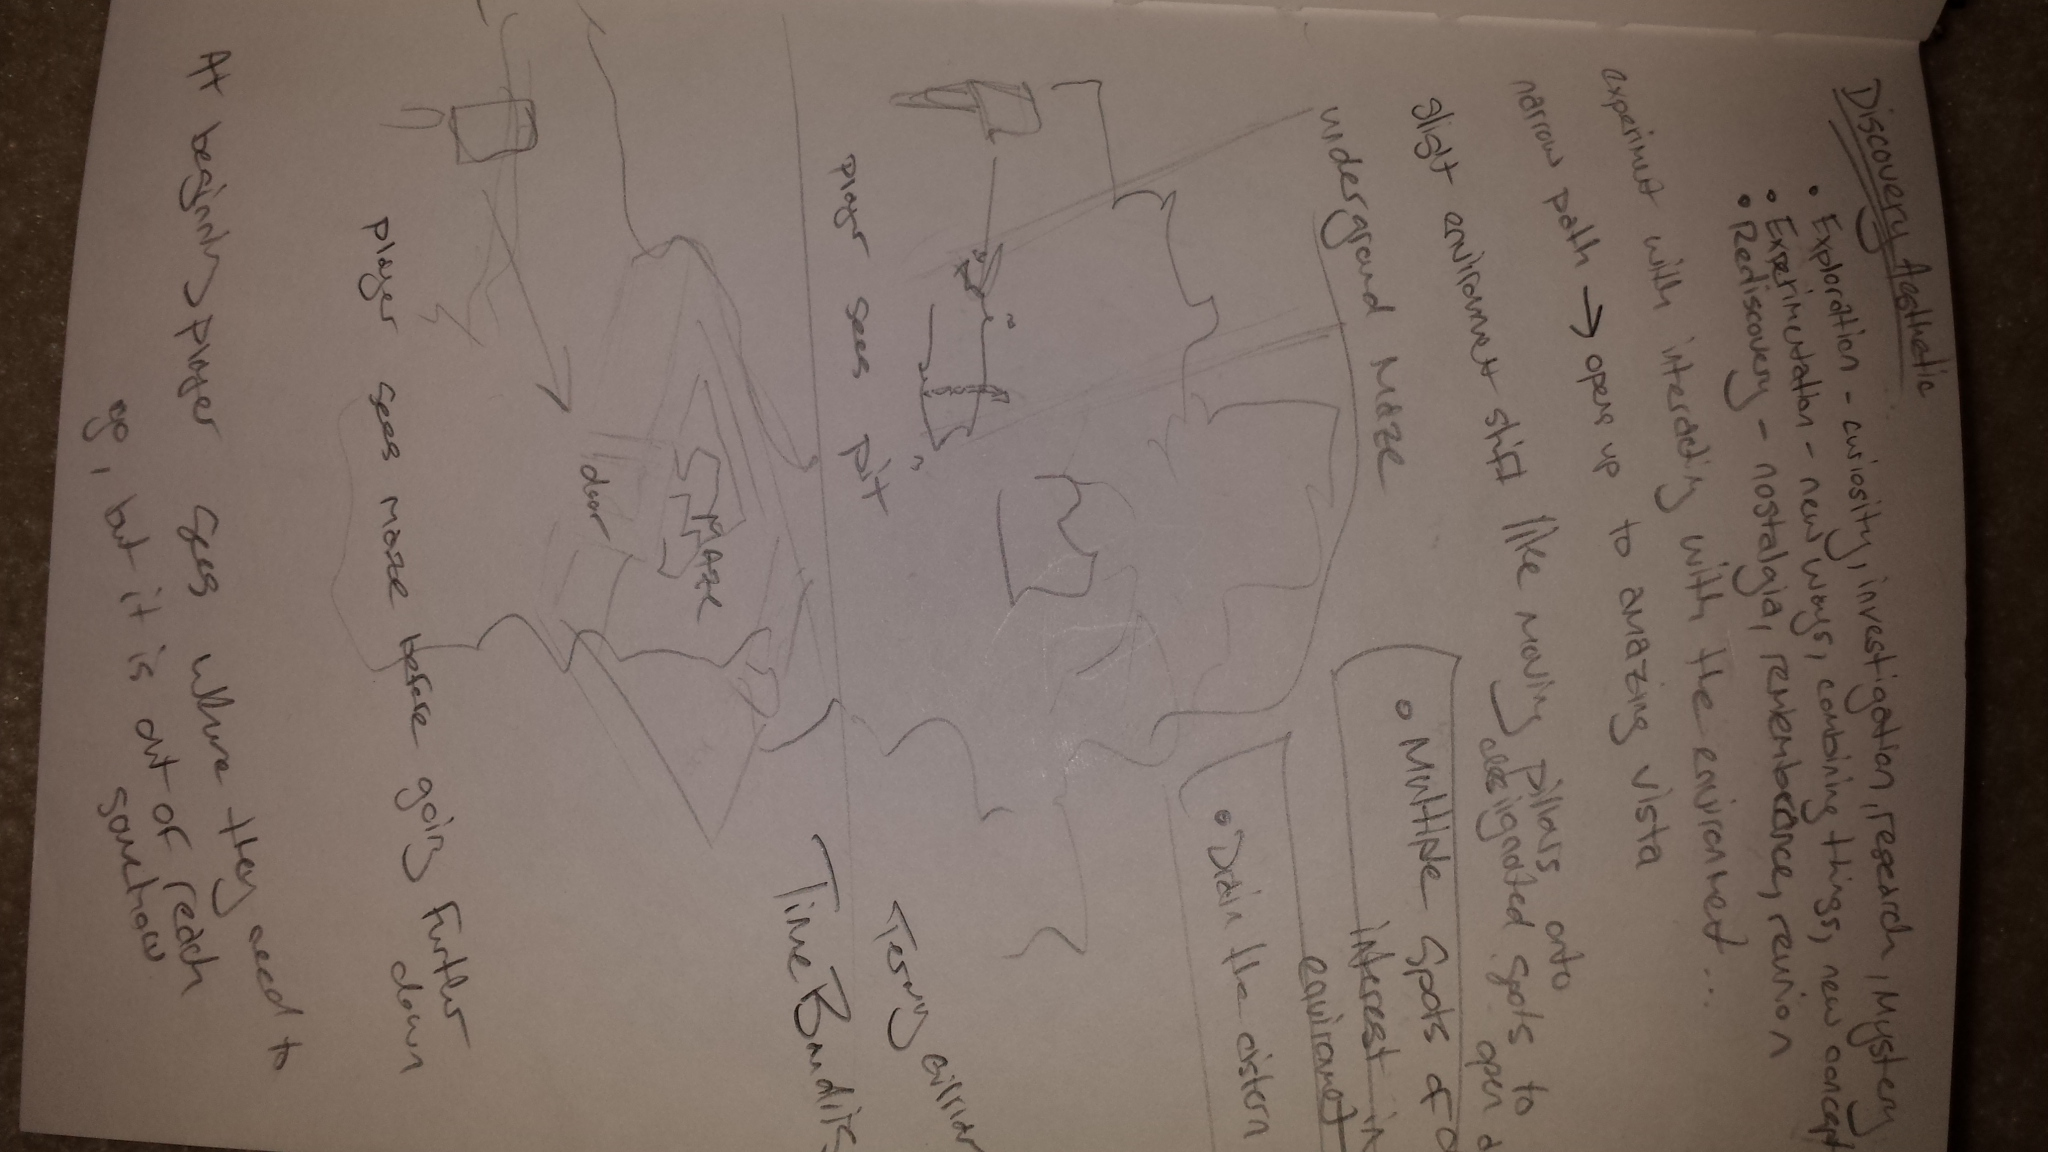 Discovery Aesthetic
• Exploration - curiosity, investigation, research, Mystery
• Experimentation - new ways, combining things, new concept
• Rediscovery - nostalgia, rememberence, reunion
experimet with interacting with the enviornmet...
narrow path → opens up to amazing vista
slight enviornmet shift like moving pillars onto
designated spots to
open a
underground Maze
• Multiple Spots of
interest in
enviornmet
• Drain the cistern
player sees pit
Terry Gilliam
Time Bandits
MAZE
door
player sees maze before going further
down
At beginning player sees where they need to
go, but it is out of reach
somehow